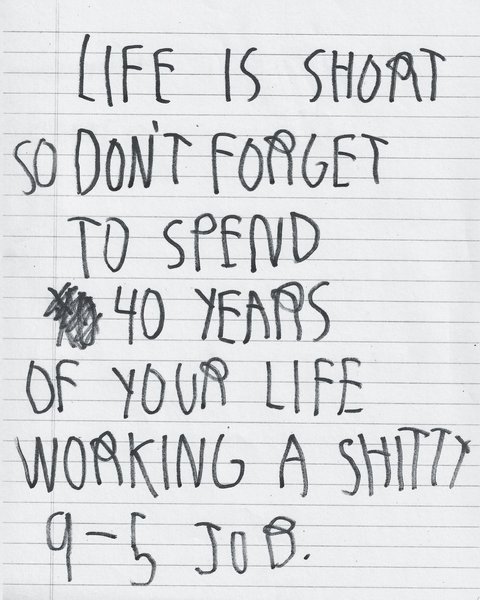 LIFE IS SHORT
SO DON'T FORGET
TO SPEND
40 YEARS
OF YOUR LIFE
WORKING A SHITTY
9-5 JOB.